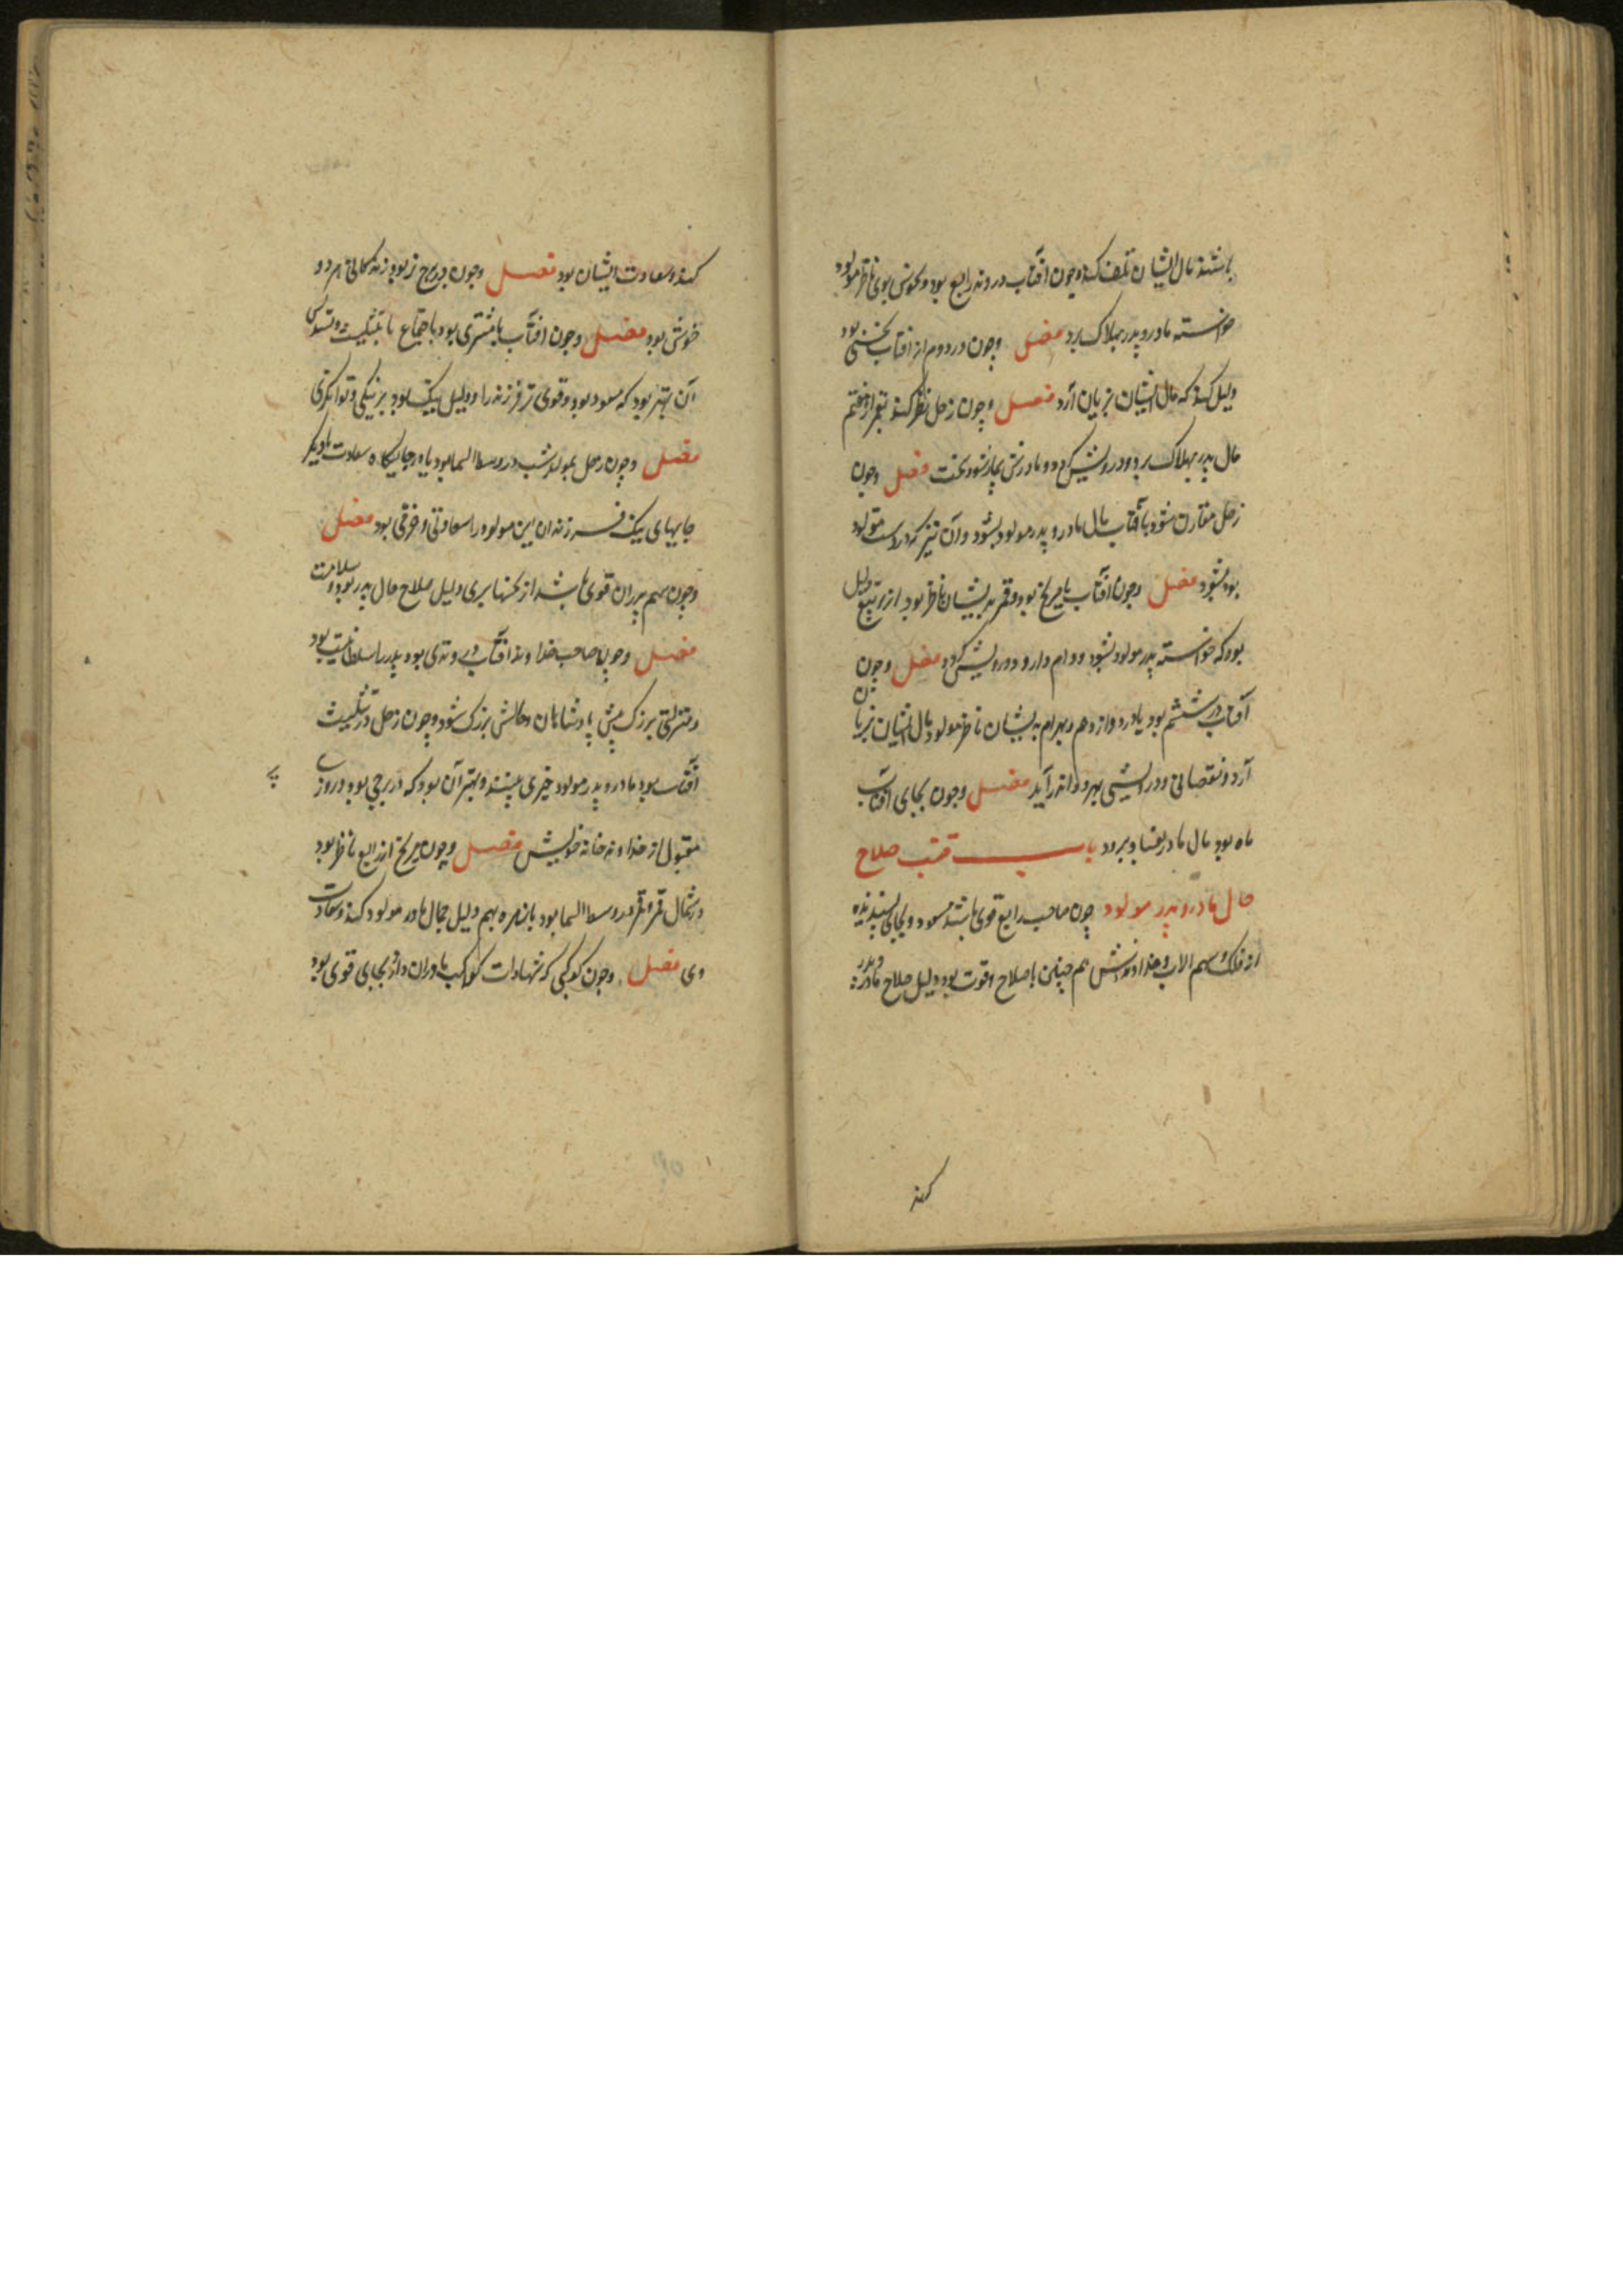 باشند مال ایشان تلف کند و چون افتاب در وتد رابع بود و نحوس بوی ناظر مولود
خواسته مادر و پدر بهلاک برد فصل وچون در دوم از افتاب نحسی بود
دلیل کند که مال ایشان بزیان آرد فصل وچون زحل نظر کند بقمر از هفتم
مال پدر بهلاک برد ودرویش کردد ومادرش بیمار شود سخت فصل وچون
زحل مقارن شود با آفتاب مال مادر و پدر مولود بشود وآن نیز که در دست مولود
بود بشود فصل وچون آفتاب با مریخ بود وقمر بدیشان ناظر بود از تربیع دلیل
بود که خواسته پدر مولود بشود ووام دارد ودرویش کردد فصل وچون
آفتاب در ششم بود یا در دوازدهم وبهرام بدیشان ناظر مولود مال ایشان بزیان
آرد ونقصانی ودرویشی بهر دو اندر آید فصل وچون بجای افتاب
ماه بود مال مادر بفساد برود باب صلاح
حال مادر و پدر مولود چون صاحب رابع قوی باشد مسعود وبجای پسندیده
از فلک وسهم الاب وخداوندش هم چنین باصلاح وقوت بود دلیل صلاح مادر و پدر
کند
کند وسعادت ایشان بود فصل وچون در برج نر بود زندکانی هر دو
خوش بود فصل وچون افتاب با مشتری بود باجتماع یا بتثلیث وتسدیس
آن بهتر بود که مسعود بود وقوی تر فرزند را ودلیل نیک بود بر نیکی وتوانکری
فصل وچون زحل بمولد شب در وسط السما بود یا در جایکاه سعادت یا دیکر
جایهای نیک فرزندان این مولود را سعادتی وفرقی بود فصل
وچون سهم پدران قوی باشد از نحسها بری دلیل صلاح حال پدر بود وسلامت
فصل وچون صاحب خداوند افتاب در وتدی بود پدر را سلطانیت بود
ومنزلتی بزرک پیش پادشاهان وحالش بزرک شود وچون زحل در تثلیث
آفتاب بود مادر و پدر مولود خیری بینند وبهتر آن بود که در برجی بود روزی
مقبول از خداوند خانه خویش فصل وچون مریخ از رابع ناظر بود
در شمال قمر وقمر در وسط السما بود با زهره بهم دلیل جمال مادر مولود کند وسعادت
وی فصل وچون کوکبی که شهادات کواکب مادران دارد بجای قوی بود